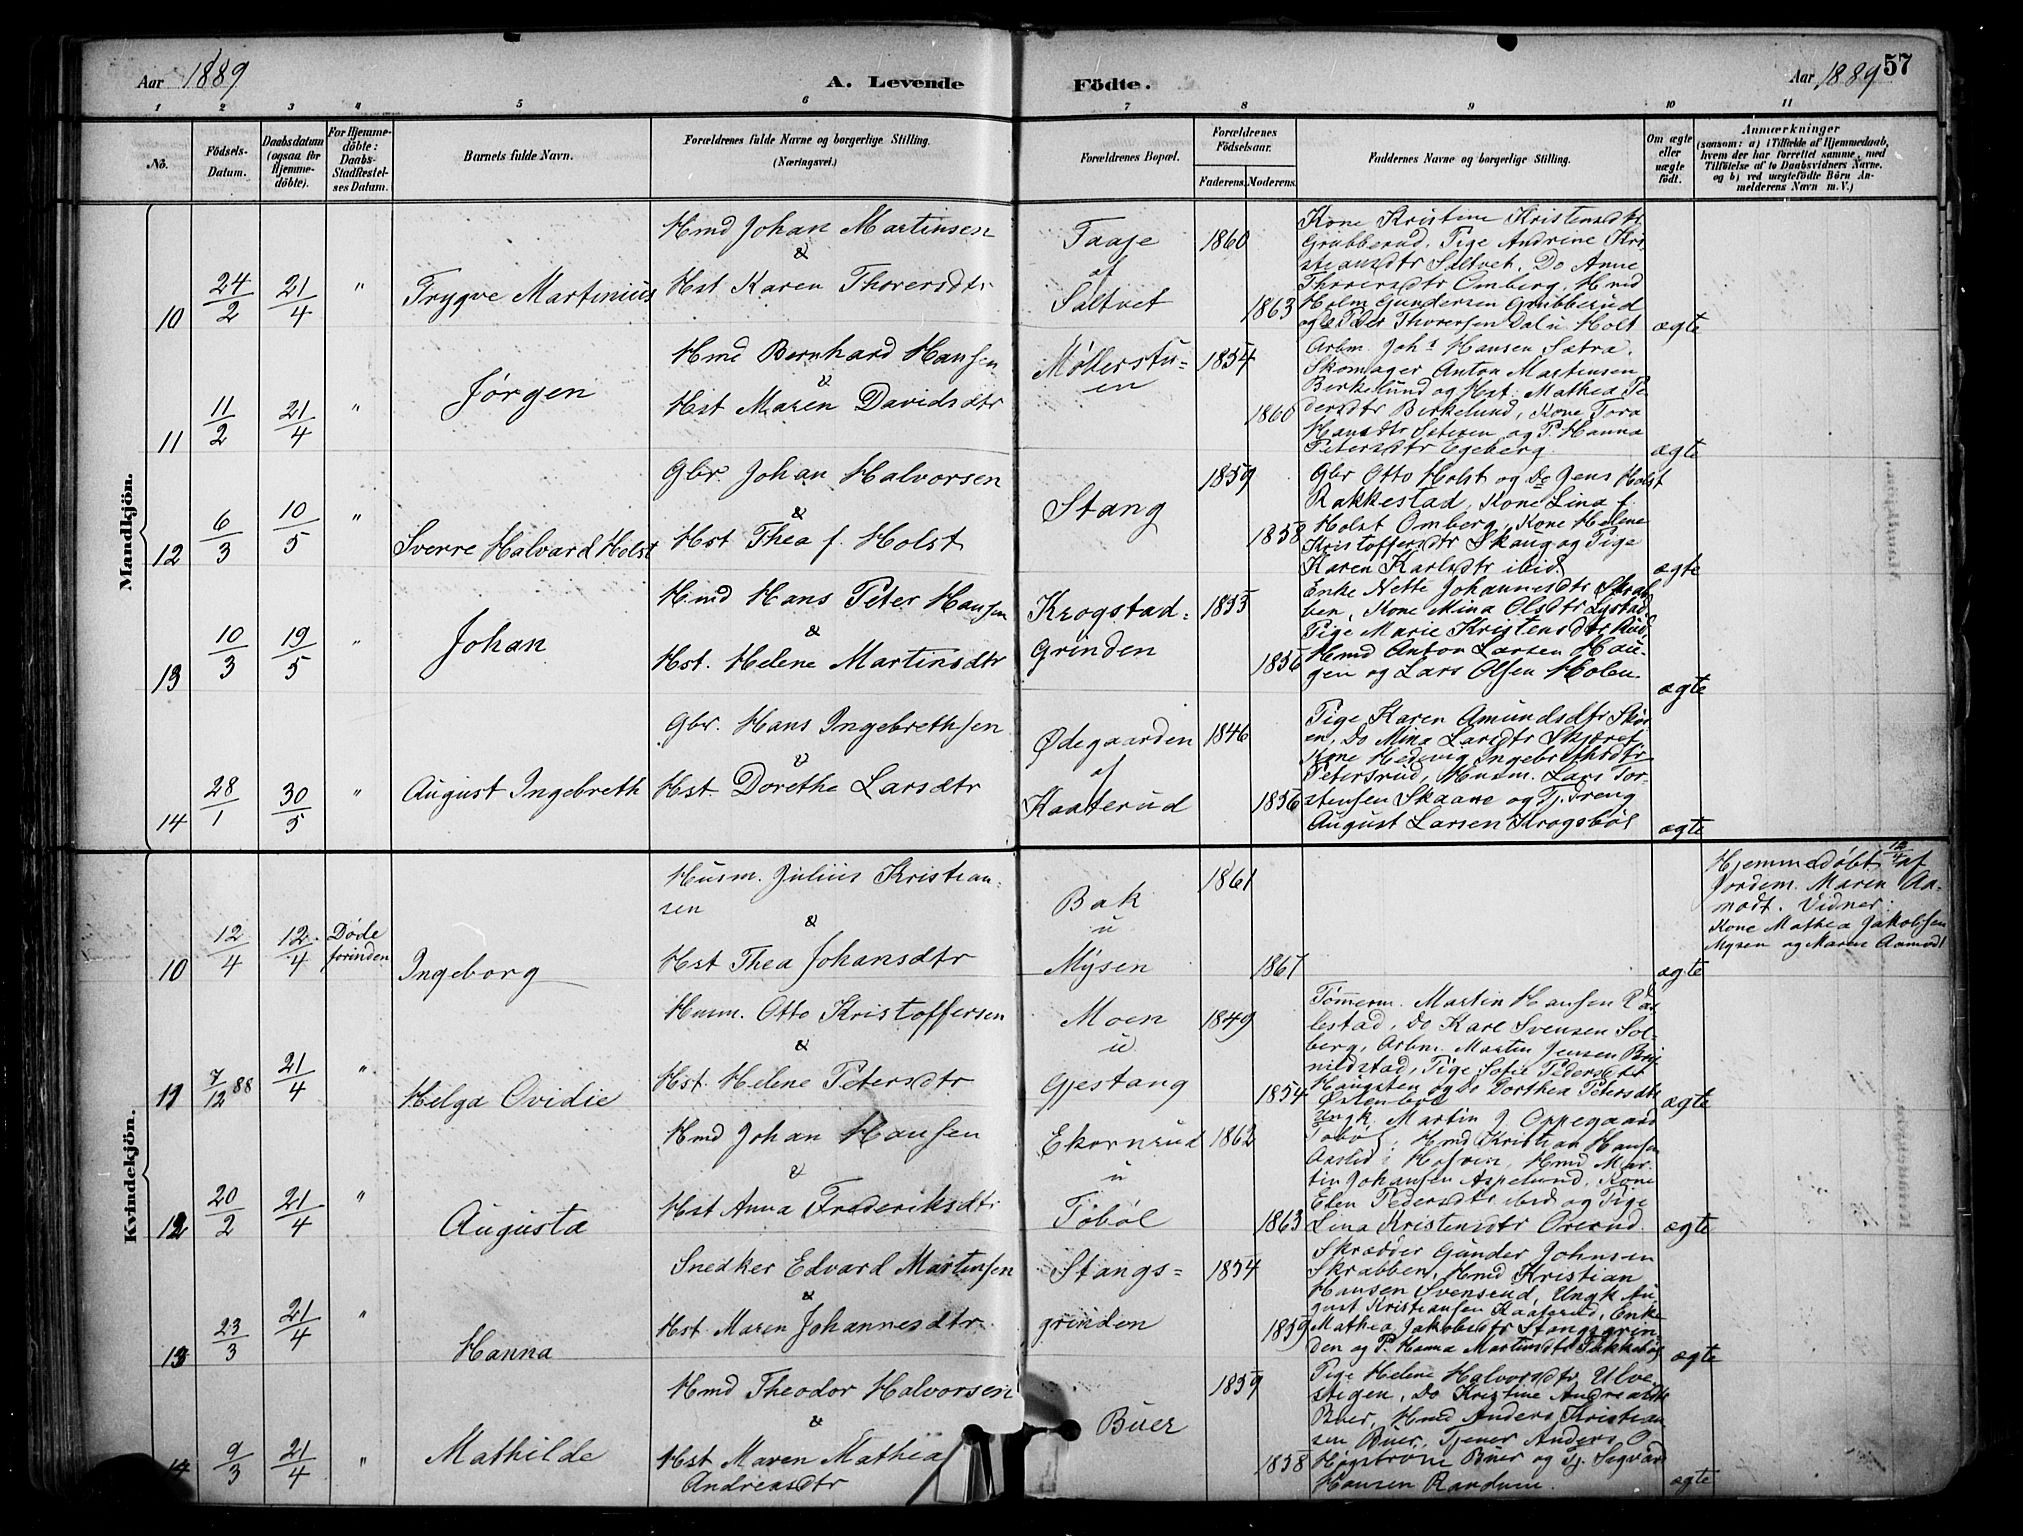 Aar 1889
A. Levende
Födte.
Aar 1889
57
1 2 3 " 5 6 7 8 9 10 11
No.
Födsels-
Datum.
Daabsdatum
(ogsaa for
Hjemme-
döbte).
For Hjemme-
döbte:
Daabs-
Stadfæstel-
ses Datum.
Barnets fulde Navn.
Forældrenes fulde Navne og borgerlige Stilling.
(Næringsvei.)
Forældrenes Bopæl.
Forældrenes
Födselsaar.
Faderens. Moderens.
Faddernes Navne og borgerlige Stilling.
Om ægte
eller
uægte
födt.
Anmærkninger
(saasom: a) i Tilfælde af Hjemmedaab,
hvem der har forrettet samme, med
Tilföielse af to Daabsvidners Navne.
og b) ved uægtefödte Börn An-
melderens Navn m. V.)
Mandkjön.
10
24/2
21/4
"
Trygve Martinius
Hmd Johan Martinsen
&
Hst Karen Thorersdtr
Taaje
af
Saltvet
1860
1863
Kone Kristine Kristensdtr
Grubberud, Pige Andrine Kri-
stiansdtr Saltvet, Do Anne
Thorersdtr Omberg, Hmd
Holm Gundersen Grubberud
og Peder Thorersen Dal u Holt
ægte
11
11/2
21/4
"
Jørgen
Hmd Bernhard Hansen
&
Hst Maren Davidsdtr
Møllerstu-
en
1854
1860
Arbm. Johs Hansen Sætra,
Skomager Anton Martinsen
Birkelund og Hst. Mathea Pe-
dersdtr Birkelund, Kone Tora
Hansdtr og P. Hanna
Petersdtr Egeberg
ægte
12
6/3
10/5
"
Sverre Halvard Holst
Gbr. Johan Halvorsen
&
Hst Thea f. Holst
Stang
1859
1858
Gbr Otto Holst og Do Jens Holst
Rakkestad, Kone Lina f.
Holst Omberg, Kone Helene
Kristoffersdtr Skaug og Pige
Karen Karlsdtr ibid
ægte
13
10/3
19/5
"
Johan
Hmd Hans Peter Hansen
&
Hst. Helene Martinsdtr
Krogstad-
grinden
1855
1856
Enke Nette Johannesdtr Skrab-
ben, Kone Mina Olsdtr Lystad,
Pige Marie Kristensdtr Rud,
Hmd Anton Larsen Hau-
gen og Lars Olsen Holen
ægte
14
28/1
30/5
"
August Ingebreth
Gbr. Hans Ingebrethsen
&
Hst. Dorethe Larsdtr
Ødegaarden
af
Kaaterud
1846
1856
Pige Karen Amundsdtr Skør-
en, Do Mina Larsdtr Skjøret
Kone Hedevig Ingebrethsdtr
Petersrud, Husm. Lars Tor-
stensen Skaane og Tj. Dreng
August Larsen Krogsbøl
ægte
Kvindekjön.
10
12/4
12/4
Døde
forinden
Ingeborg
Husm. Julius Kristian-
sen
&
Hst Thea Johansdtr
Bak
u
Mysen
1861
1867
ægte
Hjemmedøbt 12/4 af
Jordem. Maren Aa-
modt. Vidner:
Kone Mathea Jakobsen
Mysen og Maren Aamodt
11
7/12 88
21/4
"
Helga Ovidie
Husm. Otto Kristoffersen
&
Hst. Helene Petersdtr
Moen
u
Gjestang
1849
1854
Tømmerm. Martin Hansen Ra-
kestad, Do Karl Svensen Sol-
berg, Arbm. Martin Jensen
nildstad, Pige Sofie Pedersdtr
Haugsten og Do Dorthea Petersdtr
Østenbøl
ægte
12
20/2
21/4
"
Augusta
Hmd Johan Hansen
&
Hst Anna Frederiksdtr
Ekornrud
u
Tøbøl
1862
1863
Ungk. Martin J. Oppegaard
Tobøl, Hmd Kristian Hansen
Aaslid i Høfven, Hmd Mar-
tin Johansen Aspelund, Kone
Elen Pedersdtr ibid og Pige
Lina Kristensdtr Overud
ægte
13
23/3
21/4
"
Hanna
Snedker Edvard Martinsen
&
Hst. Maren Johannesdtr
Stangs-
grinden
1854
1859
Skrædder Gunder Johnsen
Skrabben, Hmd Kristian
Hansen Svensrud, Ungk Au-
gust Kristiansen Kaaterud, Enke
Mathea Jakobsdtr Stangsgrin-
den og P. Hanna Martinsdtr
ægte
14
9/3
21/4
"
Mathilde
Hmd Theodor Halvorsen
&
Hst Maren Mathea
Andreasdtr
Buer
1859
1858
Pige Helene Halvorsdtr Ulve-
stigen, Do Kristine Andreasdtr
Buer, Hmd Anders Kristian-
sen Buer, Tjener Anders O.
Høgstrøm Buer og Tj. Sigvard
Hansen Randum.
ægte